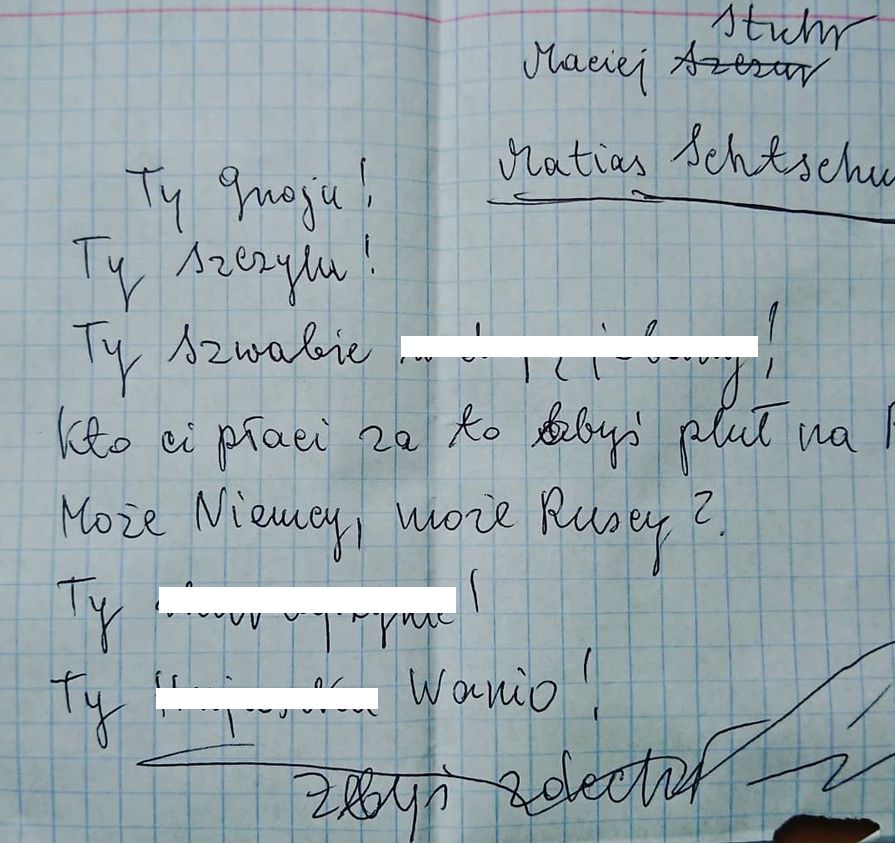 Stuhr
Maciej
Matias Schtschu
Ty gnoju!
Ty szczylu!
Ty szwabie !
Kto ci płaci za to żbyś pluł na
Może Niemcy, może Ruscy?
Ty !
Ty Wanio!
żbyś zdechł